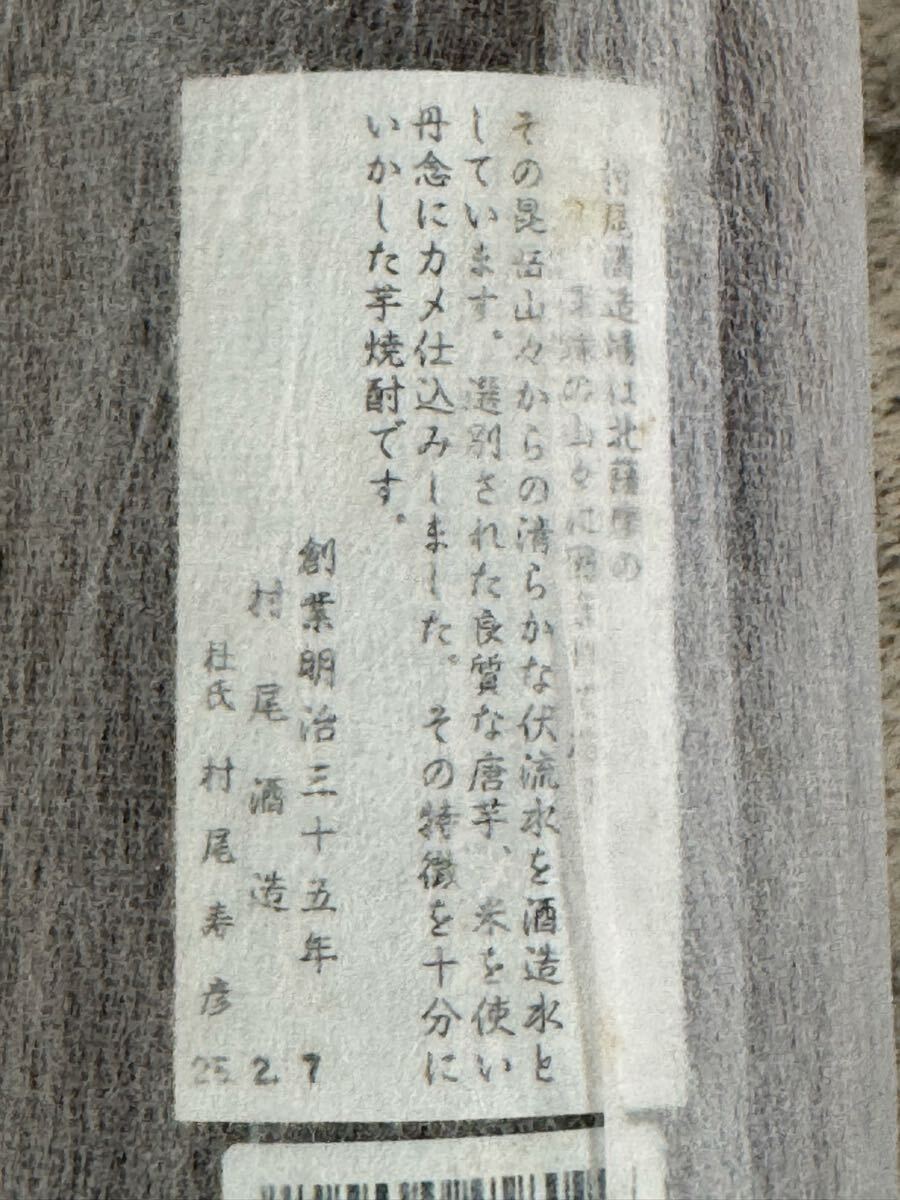 村尾酒造場は北薩摩の
の山々に
その昆岳山々からの清らかな伏流水を酒造水と
しています。選別された良質な唐芋、米を使い
丹念にカメ仕込みしました。その特徴を十分に
いかした芋焼酎です。
創業明治三十五年
村尾酒造
杜氏 村尾寿彦
25 2. 7